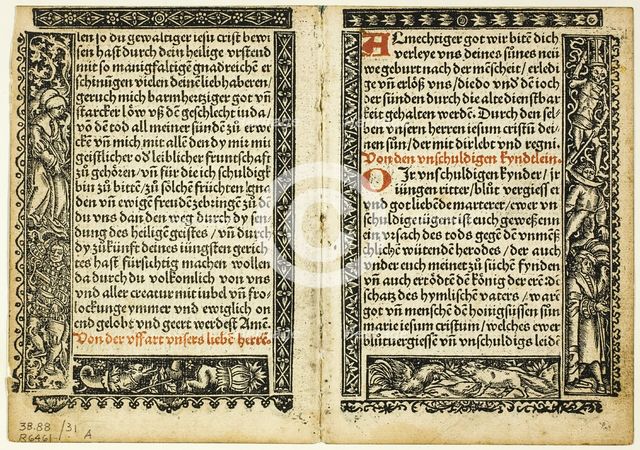 len so du gewaltiger iesu crist bewi
sen hast durch dein heilige vrstend
mit so manigfaltigē gnadreichē er
schinūgen vielen deinē liebhaberen/
geruch mich barmhertziger got vn̄
starcker lōw vß dē geschlecht iuda/
vō dē tod all meiner sündē zů erwe
ckē vn̄ mich mit allē den dy mir mit
geistlicher od' leiblicher fruntschaft
zů gehören/ vn̄ für die ich schuldig
bin zů bittē/ zů sölchē früchten
den vn̄ ewigē freudē zebringē zů dē
du vns dan den weg durch dy sen
dung des heiligē geistes/ vn̄ durch
dy zůkünft deines iüngsten gerich
tes hast fürsichtig machen wollen
da durch du volkomlich von vns
vnd aller creatur mit iubel vn̄ fro-
lockunge ymmer vnd ewiglich on
end gelobt vnd geert werdest Amē.
Von der vffart vnsers liebē herrē.
38.88/31
R6461 A
ALmechtiger got wir bitē dich
verleye vns deines sūnes neü
we geburt nach der mēscheit/ erledi
ge vn̄ erlöß vns/ die do vnd dē ioch
der sünden durch die alte dienstbar
keit gehalten werdē. Durch den sel
ben vnsern herren iesum cristū dei
nen sun/ der mit dir lebt vnd regni.
Von den vnschuldigen kyndlein.
OIr vnschuldigen kynder/ ir
iüngen ritter/ blůt vergiesser
vnd got liebēde marterer/ ewer vn
schuldge iügent ist euch geweßenn
ein vrsach des tods gegē dē vnmēs
chlichē wütendē herodes/ der auch
vnder euch meinte zů süchē
vn̄ auch ertödtē dē könig der erē dē
schatz des hymlischē vaters/ warē
got vn̄ menschē dē honigsüssen sün
marie iesum cristum/ welches ewer
blůtuergiessē vn̄ vnschuldigs leidē